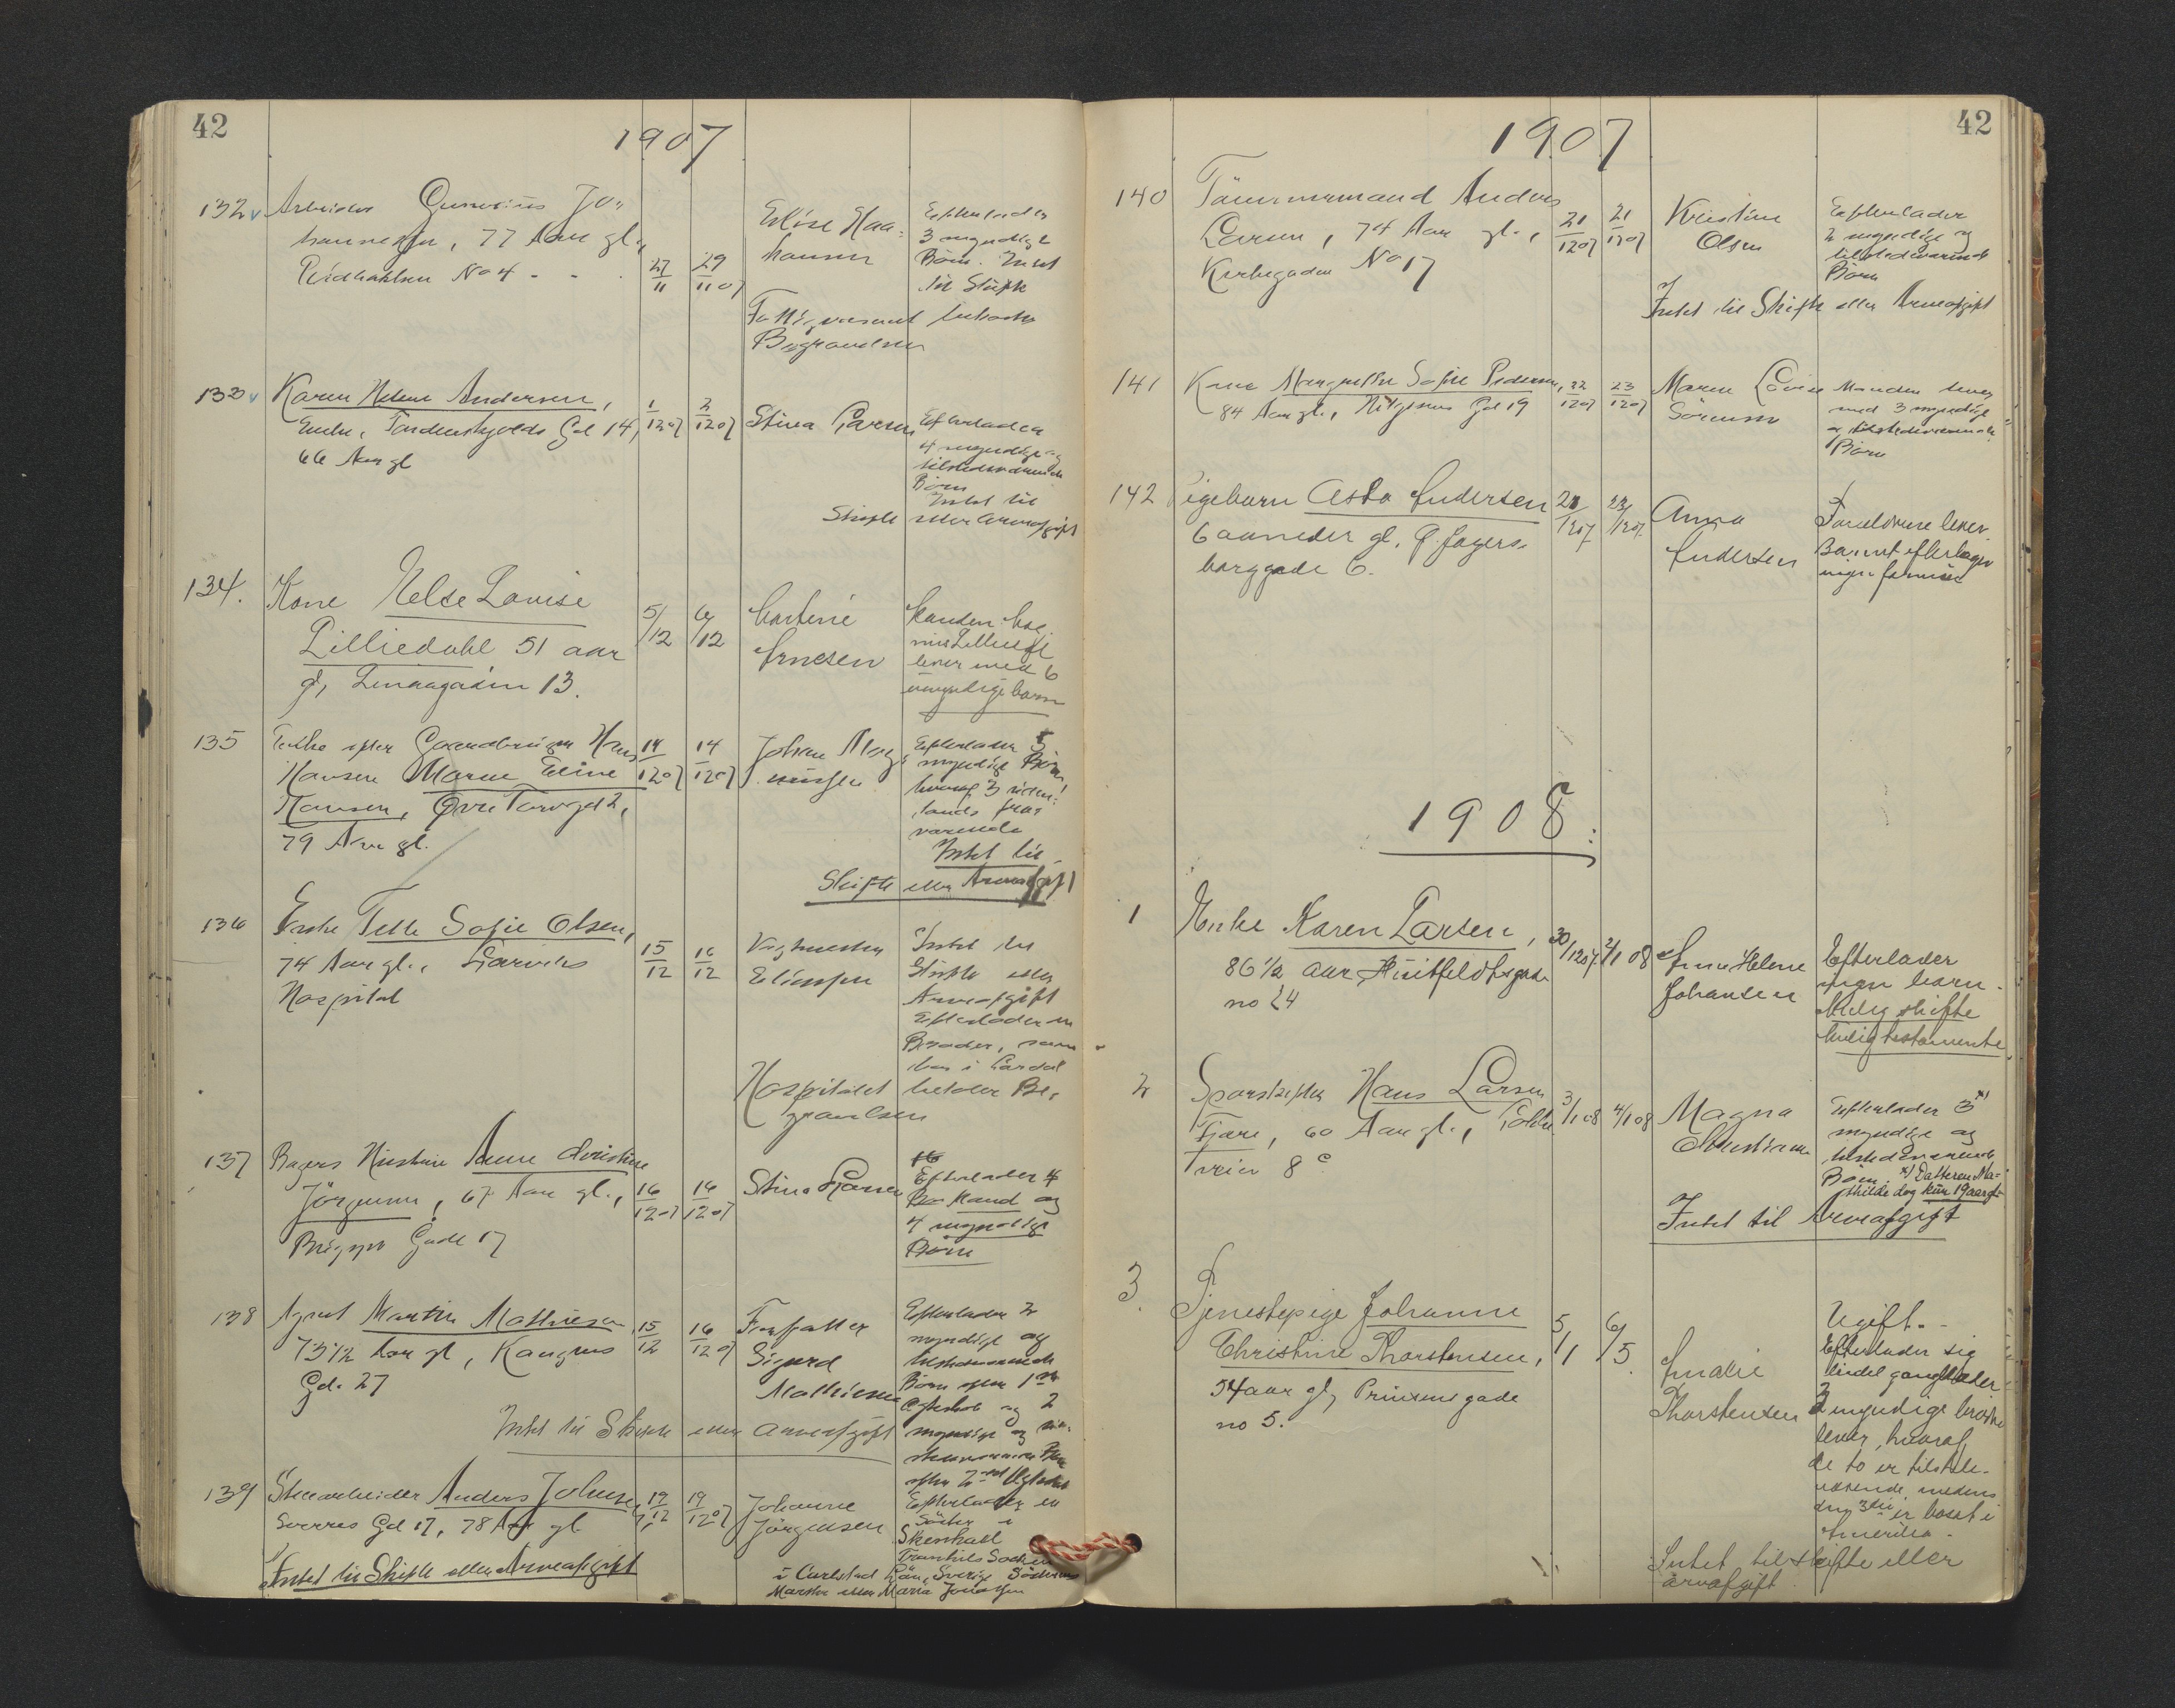 42
1907
132 Arbeider Gunerius Jo-
hannessen, 77 Aar gl.,
No 4 27/11 29/11 07
Elise Haa-
hansen
Efterlader
3 myndige
Børn. Intet
til Skifte
Fattigvæsenet bekoster
Begravelsen
133 Karen Helene Andersen,
Enke, Tordenskjolds Gd 14, 1/12 07 2/12 07
66 Aar gl
Stina Larsen
Efterlader
4 myndige og
tilstedeværende
Børn
Intet til
Skifte eller Arveafgift
134. Kone Nelse Louise
Lilliedahl 51 aar 5/12 6/12
gl, Linaagaden 13.
Martine
Arnesen
Manden
lever med 6
umyndige barn
135 Enke efter Gaardbruger Hans 14/12 07 14/12 07
Hansen Maren Eline
Hansen, Øvre Torvgd 2,
79 Aar gl.
Johan Mag-
nussen
Efterlader 5
myndige Børn,
hvoraf 3 uden-
lands fra-
værende
Intet til
Skifte eller Arveafgift
136 Enke Telle Sofie Olsen,
74 Aar gl., 15/12 16/12
Hospital
Vagtmester
Eliassen
Intet til
Skifte eller
Arveafgift
Efterlader en
Broder, som
bor i Lardal
Hospitalet betaler Be-
gravelsen
137 Bagers Hustru Anne Christine
Jörgensen, 67 Aar gl., 16/12 07 16/12 07
Brygge Gade 17
Stina Larsen
Efterlader
Mand og
4 myndige
Børn
138 Agent Martin Mathiesen,
73 1/2 Aar gl, Kongens 15/12 16/12 07
Gd. 27
Forfatter
Sigurd
Mathiesen
Efterlader 2
myndige og
tilstedeværende
Børn efter 1ste
Ægteskab og 2
myndige og til-
stedeværende Børn
efter 2det Ægteskab
Intet til Skifte eller Arveafgift
139 Stenarbeider Anders Johnsen 19/12 19/12 07
Sverres Gd 17, 78 Aar gl
Johanne
Jörgensen
Efterlader en
Søster i
Skenhall
Socken
i Carlstad Län, Sverige Søsteren
Martha eller Maria Jonassen
Intet til Skifte eller Arveafgift
42
1907
140 Tömmermand Anders
Larsen, 74 Aar gl., 21/12 07 21/12 07
Kirkegaden No 17
Kristine
Olsen
Efterlader
2 myndige og
tilstedeværende
Børn
Intet til Skifte eller Arveafgift
141 Kone Margrethe Sofie Pedersen, 22/12 07 23/12 07
84 Aar gl., Gd 19
Maren Lovise
Sörensen
Manden lever
med 3 myndige
og tilstedeværende
Børn
142 Pigebarn Asta Andersen
6 aaneder gl, Fagers-
borggade 6.
Anna
Andersen
Forældrene lever
Barnet efterlager
ingen formue
1908.
1 Enke Karen Larsen, 30/12 07 2/1 08
86 1/2 aar, Huitfeldtsgade
no 24
Anna Helene
Johansen
Efterlader
ingen barn.
Melig skifte
Melig testamente
2 Hans Larsen 3/1 08 4/1 08
Fjære, 60 Aar gl.,
8 c
Magna
Christiansen
Efterlader 3 x)
myndige og
tilstedeværende
Børn. x) Datteren Ma-
thilde dog kun 19 aar gl.
Intet til Arveafgift
3. Tjenestepige Johanne
Christine Thorstensen, 5/1 6/5
54 aar gl, Prinsensgade
no 5.
Amalie
Thorstensen
Ugift.
Efterlader sig
lidel gangklæder
3 myndige brødre
lever, hvoraf
de to er tilstede-
værende, medens
den 3die er bosat i
Amerika.
Intet til skifte eller
arvafgift